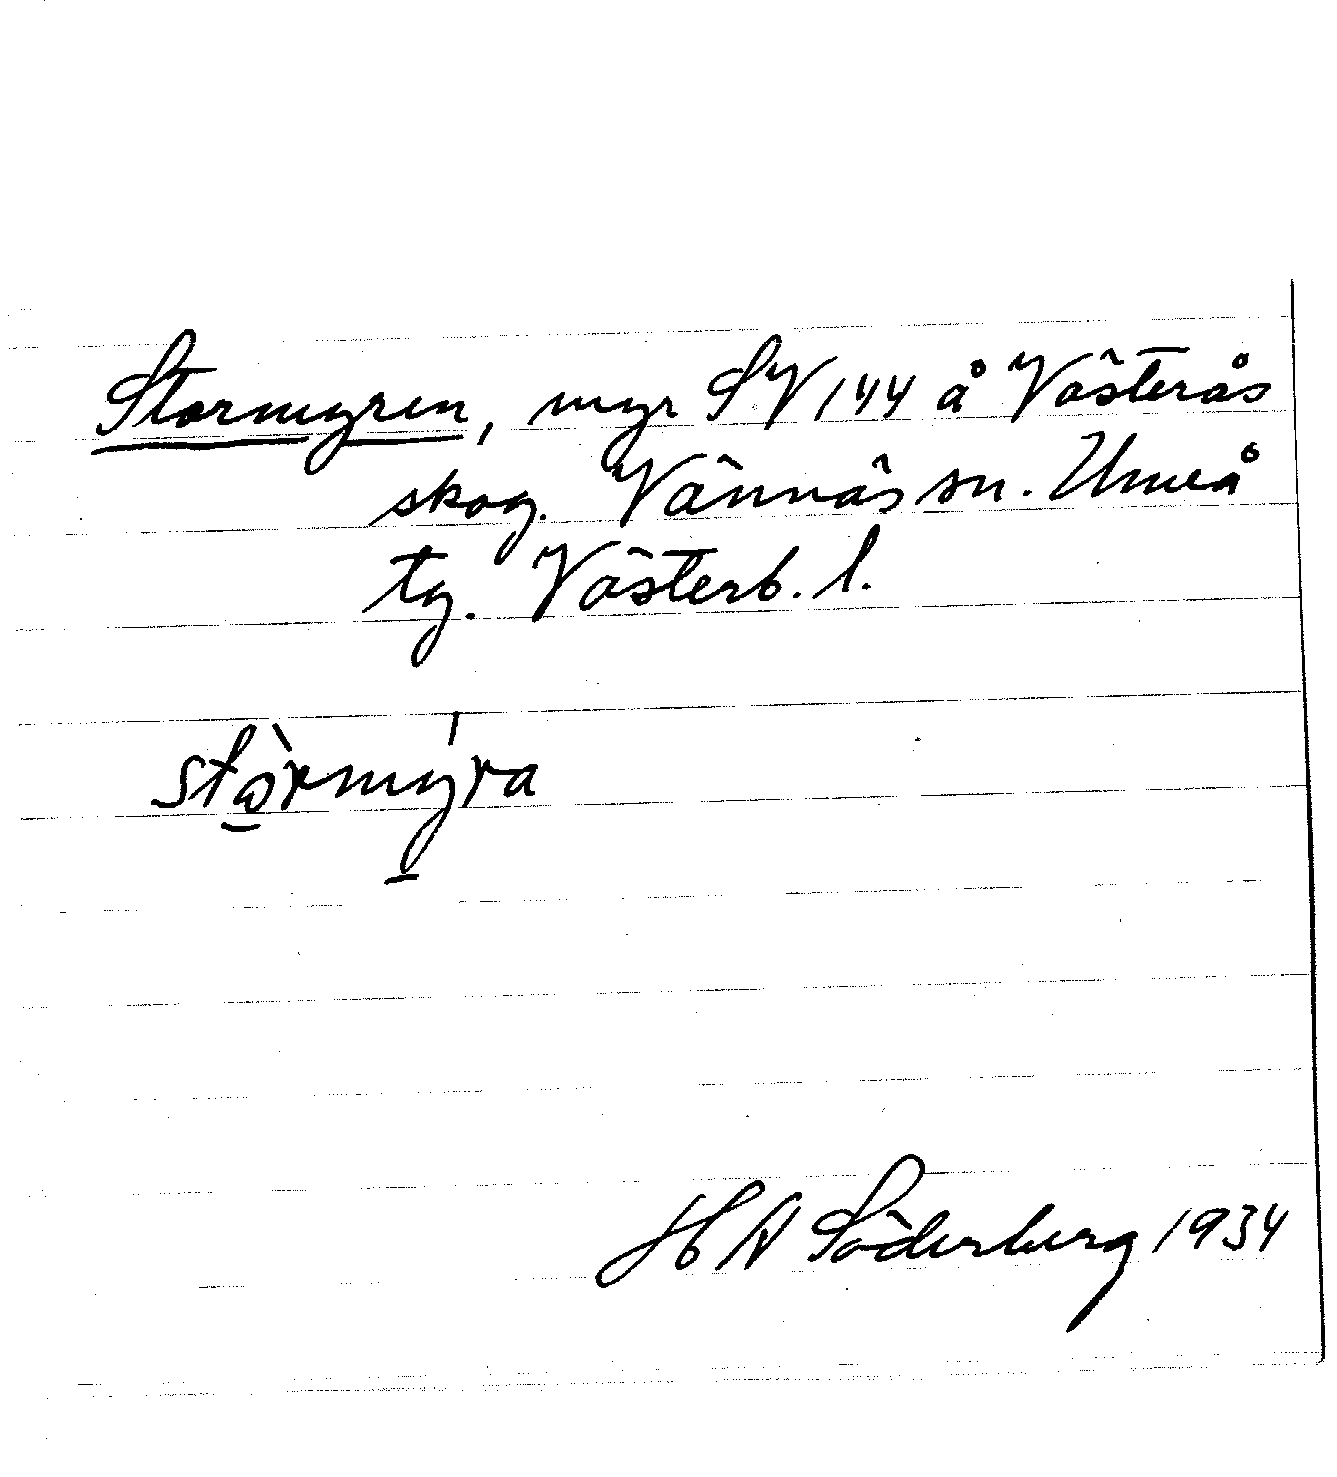 Stormyren, myr SV 144 å Västerås
skog. Vännäs sn. Umeå
tg. Västerb. l.
stòrmýra
H A Söderberg 1934